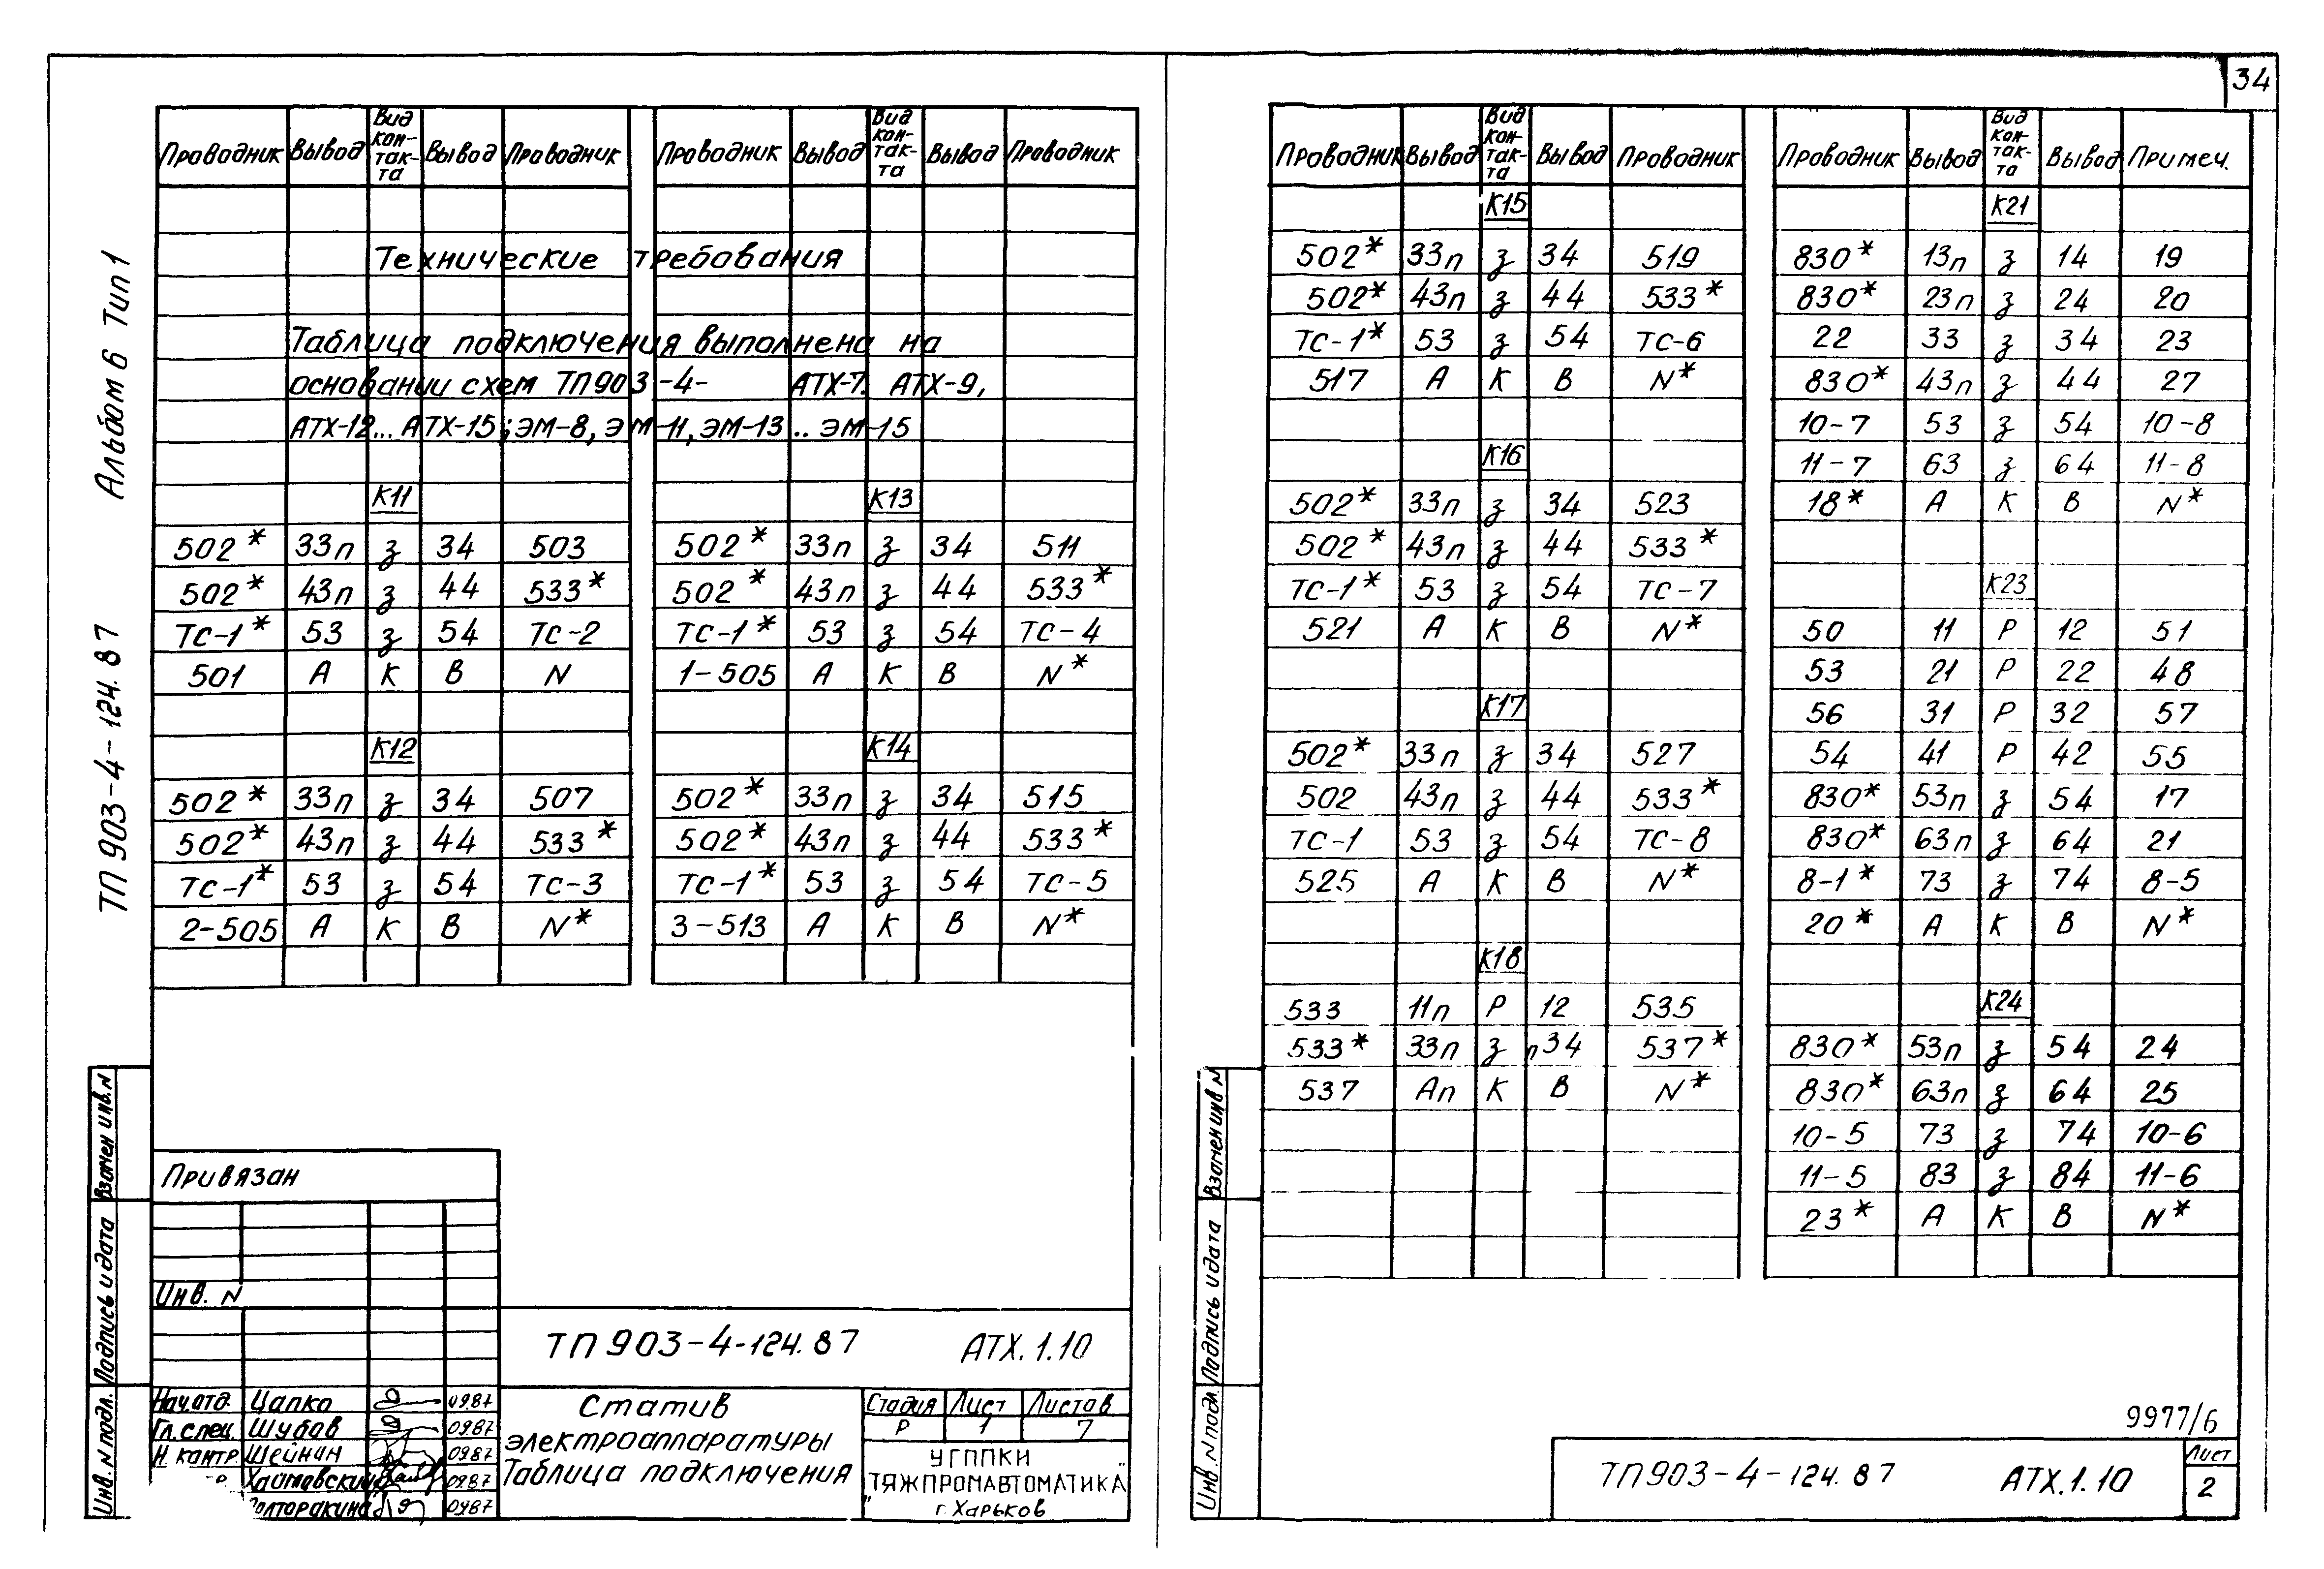 34
Альбом 6 Тип 1
ТП 903-4-124.87
Проводник Вывод Вид кон-так-та Вывод Проводник Проводник Вывод Вид кон-так-та Вывод Проводник
Технические требования
Таблица подключения выполнена на
основании схем ТП903-4- АТХ-7. АТХ-9,
АТХ-12... АТХ-15; ЭМ-8, ЭМ-11, ЭМ-13 .. ЭМ-15
К11 К13
502* 33п з 34 503 502* 33п з 34 511
502* 43п з 44 533* 502* 43п з 44 533*
ТС-1* 53 з 54 ТС-2 ТС-1* 53 з 54 ТС-4
501 А К В N 1-505 А К В N*
К12 К14
502* 33п з 34 507 502* 33п з 34 515
502* 43п з 44 533* 502* 43п з 44 533*
ТС-1* 53 з 54 ТС-3 ТС-1* 53 з 54 ТС-5
2-505 А К В N* 3-513 А К В N*
Привязан
Инв. N
Взамен инв. N
Подпись и дата
Инв. N подл.
ТП 903-4-124.87 АТХ.1.10
Нач.отд. Цапко 09.87
Гл.спец. Шубов 09.87
Н.контр. Шейнин 09.87
09.87
09.87
Статив
электроаппаратуры
Таблица подключения
Стадия Лист Листов
Р 1 7
УГППКИ
"ТЯЖПРОМАВТОМАТИКА"
г. Харьков
Проводник Вывод Вид кон-так-та Вывод Проводник Проводник Вывод Вид кон-так-та Вывод Примеч.
К15 К21
502* 33п з 34 519 830* 13п з 14 19
502* 43п з 44 533* 830* 23п з 24 20
ТС-1* 53 з 54 ТС-6 22 33 з 34 23
517 А К В N* 830* 43п з 44 27
10-7 53 з 54 10-8
К16 11-7 63 з 64 11-8
502* 33п з 34 523 18* А К В N*
502* 43п з 44 533*
ТС-1* 53 з 54 ТС-7 К23
521 А К В N* 50 11 Р 12 51
53 21 Р 22 48
К17 56 31 Р 32 57
502* 33п з 34 527 54 41 Р 42 55
502 43п з 44 533* 830* 53п з 54 17
ТС-1 53 з 54 ТС-8 830* 63п з 64 21
525 А К В N* 8-1* 73 з 74 8-5
20* А К В N*
К18
533 11п Р 12 535 К24
533* 33п з п34 537* 830* 53п з 54 24
537 Ап К В N* 830* 63п з 64 25
10-5 73 з 74 10-6
11-5 83 з 84 11-6
23* А К В N*
Взамен инв. N
Подпись и дата
Инв. N подл.
9977/6
ТП903-4-124.87 АТХ.1.10
Лист
2